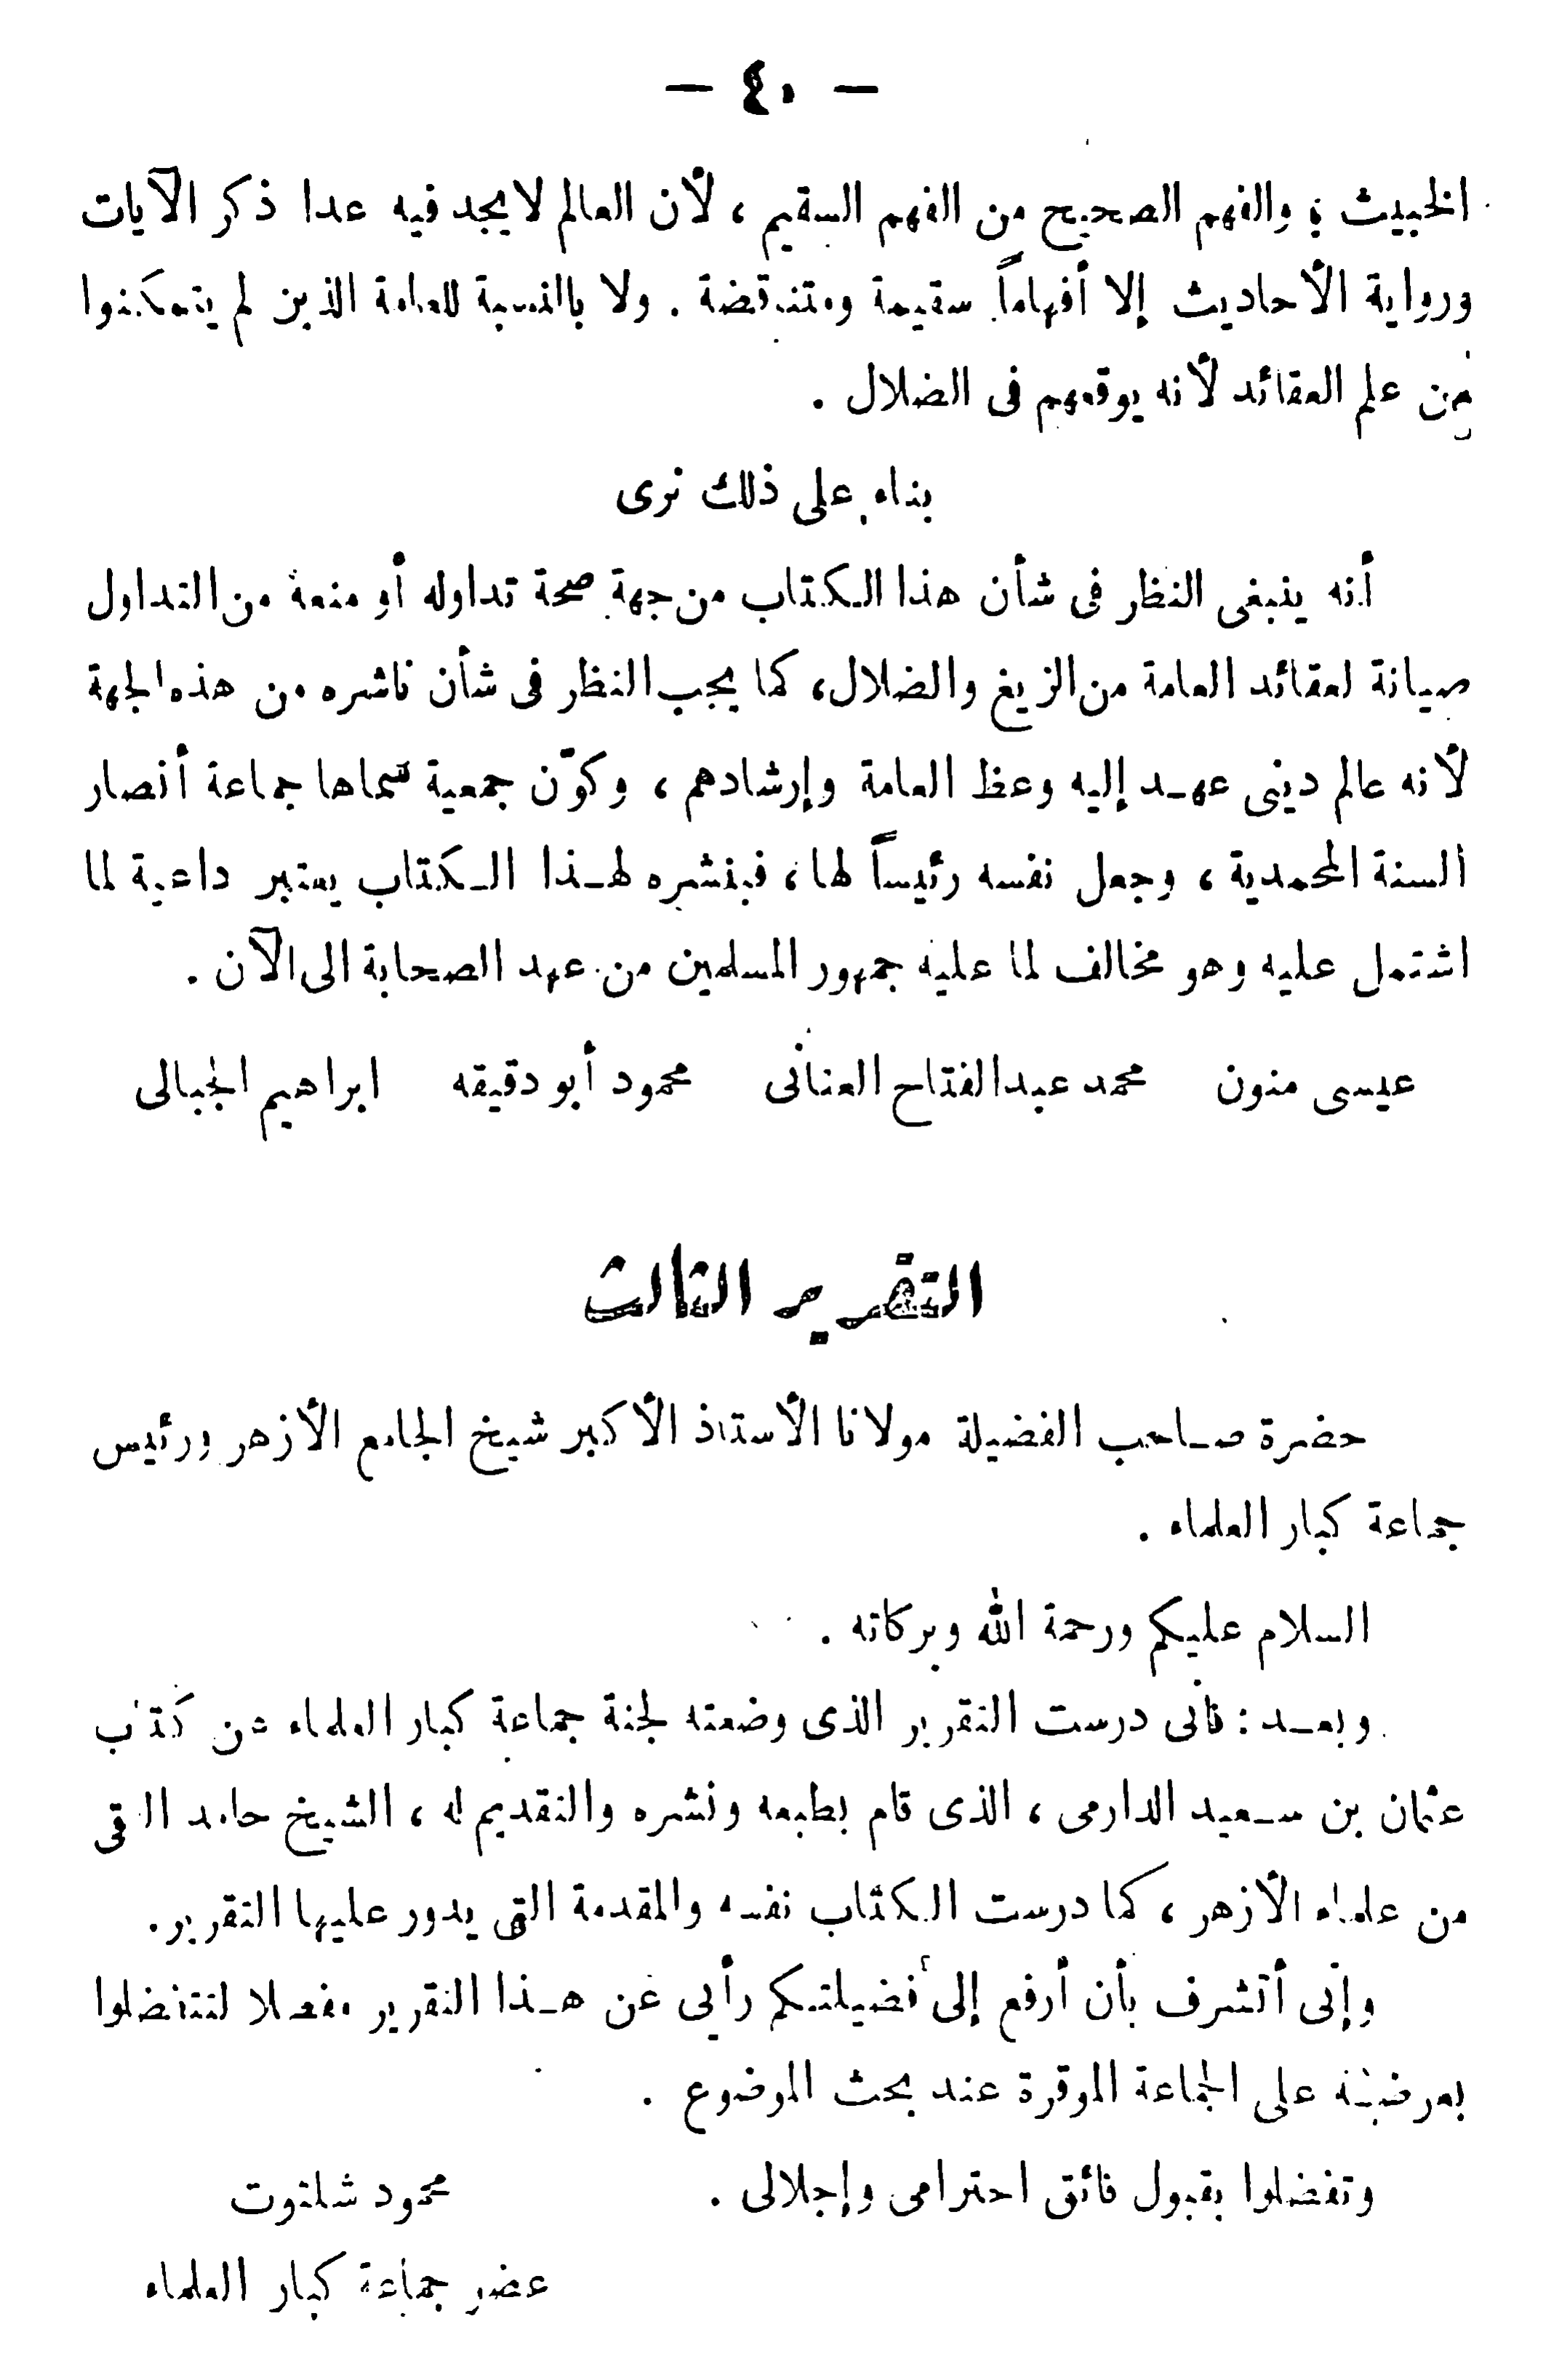 — ٤٠ —
الخبيث ، والفهم الصحيح من الفهم السقيم ، لأن العالم لا يجد فيه عدا ذكر الآيات
ورواية الأحاديث إلا أفهاماً سقيمة ومتناقضة . ولا بالنسبة للعامة الذين لم يتمكنوا
من علم العقائد لأنه يوقعهم فى الضلال .
بناء على ذلك نرى
أنه ينبغى النظر فى شأن هذا الكتاب من جهة صحة تداوله أو منعه من التداول
صيانة لعقائد العامة من الزيغ والضلال، كما يجب النظر فى شأن ناشره من هذه الجهة
لأنه عالم دينى عهد إليه وعظ العامة وإرشادهم ، وكوّن جمعية سماها جماعة أنصار
السنة المحمدية ، وجعل نفسه رئيساً لها ، فبنشره لهذا الكتاب يعتبر داعية لما
اشتمل عليه وهو مخالف لما عليه جمهور المسلمين من عهد الصحابة الى الآن .
عيسى منون محمد عبدالفتاح العنانى محمود أبو دقيقه ابراهيم الجبالى
التقرير الثالث
حضرة صاحب الفضيلة مولانا الأستاذ الأكبر شيخ الجامع الأزهر ورئيس
جماعة كبار العلماء .
السلام عليكم ورحمة الله وبركاته .
وبعد : فانى درست التقرير الذى وضعته لجنة جماعة كبار العلماء عن كتاب
عثمان بن سعيد الدارمى ، الذى قام بطبعه ونشره والتقديم له ، الشيخ حامد الفقى
من علماء الأزهر ، كما درست الكتاب نفسه والمقدمة التى يدور عليها التقرير .
وإنى أتشرف بأن أرفع إلى فضيلتكم رأيى عن هذا التقرير مفصلا لتتفضلوا
بعرضه على الجماعة الموقرة عند بحث الموضوع .
وتفضلوا بقبول فائق احترامى وإجلالى . محمود شلتوت
عضو جماعة كبار العلماء